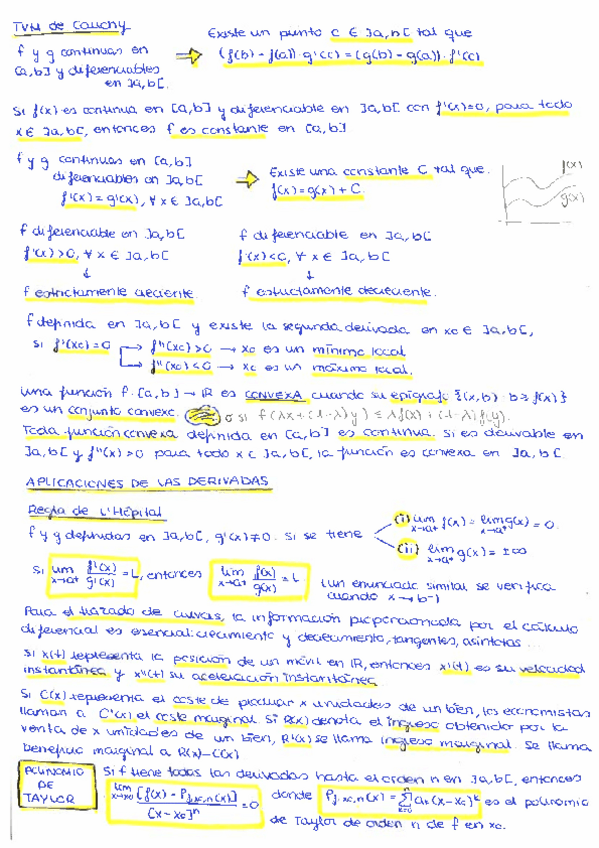 TVM de Cauchy
f y g continuas en [a,b] y diferenciables en ]a,b[ ⇒ Existe un punto c ∈ ]a,b[ tal que (f(b) - f(a)) · g'(c) = (g(b) - g(a)) · f'(c)
Si f(x) es continua en [a,b] y diferenciable en ]a,b[ con f'(x)=0, para todo
x ∈ ]a,b[, entonces f es constante en [a,b]
f y g continuas en [a,b]
diferenciables en ]a,b[
f'(x) = g'(x), ∀ x ∈ ]a,b[
⇒ Existe una constante C tal que.
f(x) = g(x) + C.
f(x)
g(x)
f diferenciable en ]a,b[
f'(x) > 0, ∀ x ∈ ]a,b[
↓
f estrictamente creciente
f diferenciable en ]a,b[
f'(x) < 0, ∀ x ∈ ]a,b[
↓
f estrictamente decreciente.
f definida en ]a,b[ y existe la segunda derivada en x0 ∈ ]a,b[,
si f'(x0) = 0 → f''(x0) > 0 → x0 es un mínimo local
→ f''(x0) < 0 → x0 es un máximo local.
Una función f: [a,b] → IR es CONVEXA cuando su epígrafe {(x,b): b ≥ f(x)}
es un conjunto convexo. o si f(λx + (1-λ)y) ≤ λf(x) + (1-λ)f(y).
Toda función convexa definida en [a,b] es continua. Si es derivable en
]a,b[ y f''(x) > 0 para todo x ∈ ]a,b[, la función es convexa en ]a,b[.
APLICACIONES DE LAS DERIVADAS
Regla de L'Hôpital
f y g definidas en ]a,b[, g'(x) ≠ 0. Si se tiene
(i) lim x→a+ f(x) = lim x→a+ g(x) = 0.
(ii) lim x→a+ g(x) = ±∞
Si lim x→a+ f'(x)/g'(x) = L, entonces lim x→a+ f(x)/g(x) = L (un enunciado similar se verifica
cuando x → b-)
Para el trazado de curvas, la información proporcionada por el cálculo
diferencial es esencial: crecimiento y decrecimiento, tangentes, asíntotas ...
Si x(t) representa la posición de un móvil en IR, entonces x'(t) es su velocidad
instantánea y x''(t) su aceleración instantánea.
Si C(x) representa el coste de producir x unidades de un bien, los economistas
llaman a C'(x) el coste marginal. Si R(x) denota el ingreso obtenido por la
venta de x unidades de un bien, R'(x) se llama ingreso marginal. Se llama
beneficio marginal a R(x)-C(x)
POLINOMIO
DE
TAYLOR
Si f tiene todas las derivadas hasta el orden n en ]a,b[, entonces
lim x→x0 [f(x) - Pf,x0,n(x)] / [x-x0]^n = 0 donde Pf,x0,n(x) = Σ k=0 n ak(x-x0)^k es el polinomio
de Taylor de orden n de f en x0.